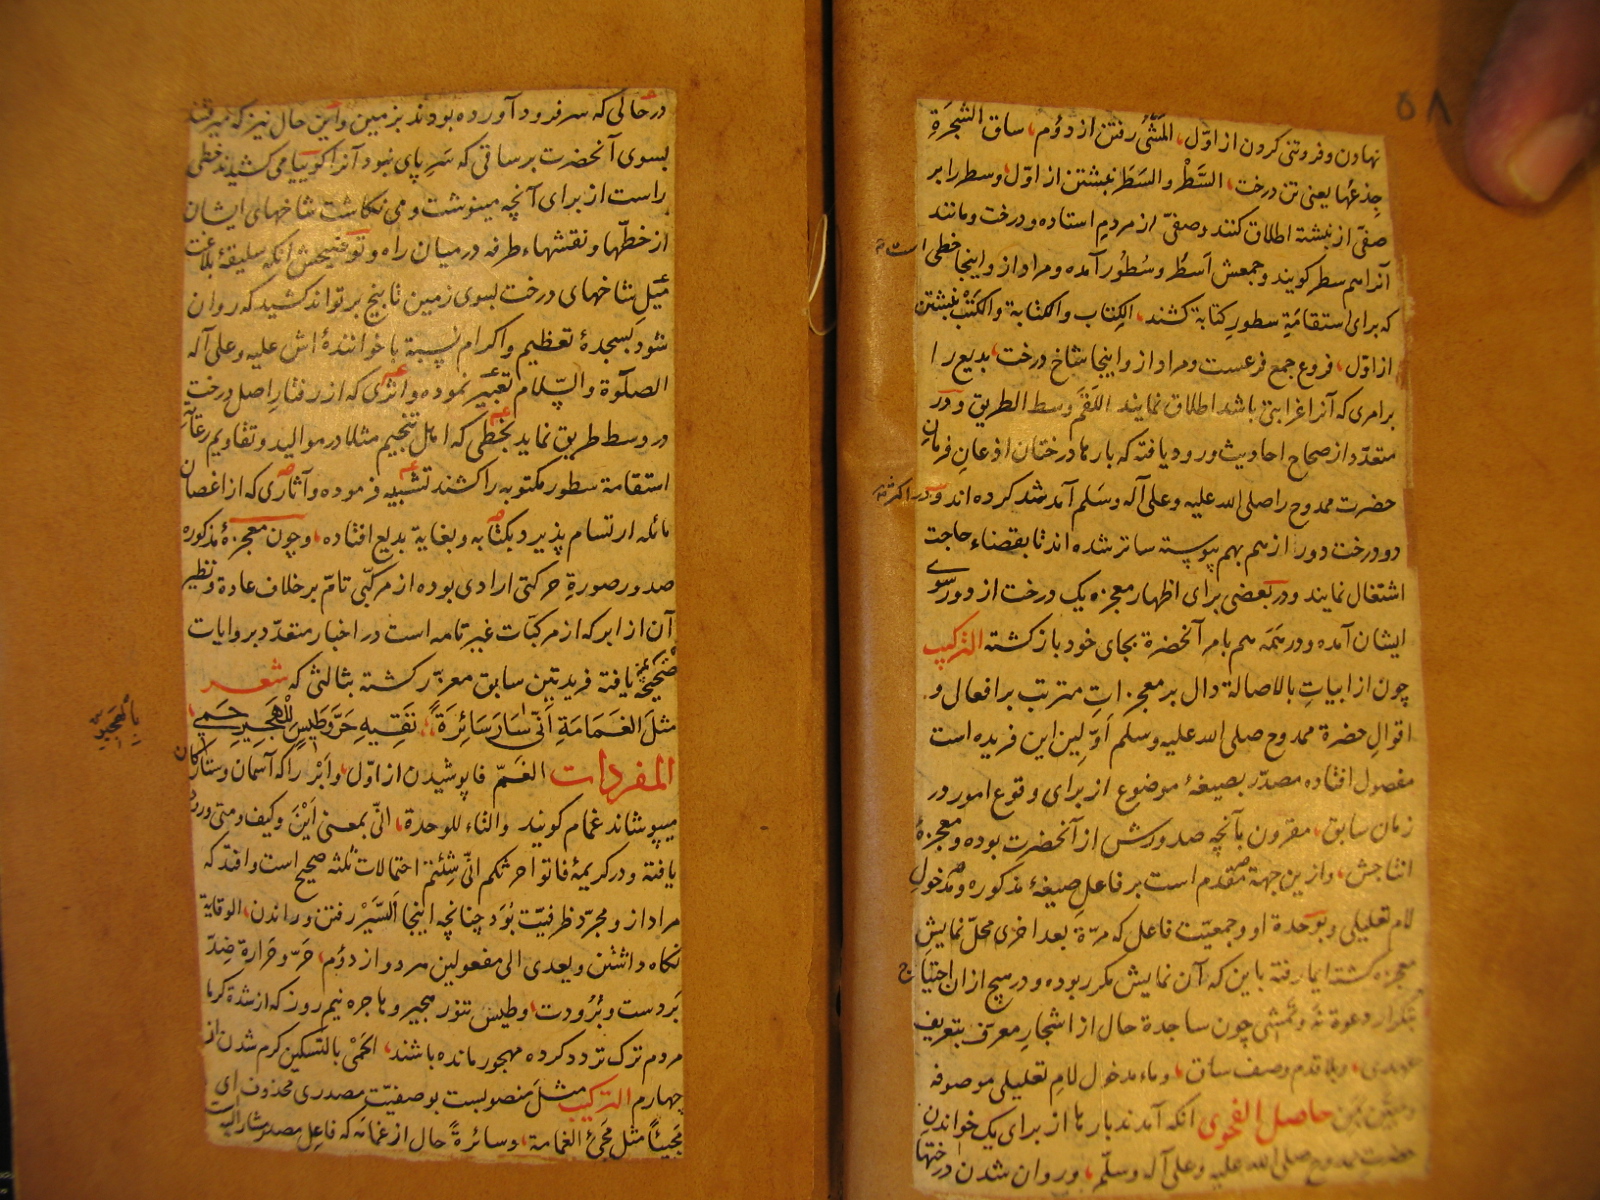 ٥٨
نهادن و فروتنی کردن از اوّل، المَشْیُ رفتن از دوُم، ساق الشجَرَةِ
جِذعُها یعنی تن درخت، السَّطْرُ والسَطَر نبشتن از اوّل، وسطر را بر
صفّی از نبشته اطلاق کنند وصفّی از مردمِ استاده و درخت و مانند
آنرا هم سطر کویند و جمعش اَسطُر وسُطُور آمده و مراد از و اینجا خطی است
که برای استقامَةِ سطورِ کتابة کشند، الکِتاب والکتابة والکَتْب نبشتن
از اوّل، فروع جمع فرعست و مراد از و اینجا شاخ درخت، بدیع را
برامری که آنرا غرابتی باشد اطلاق نمایند اللَقَم وسط الطریق و در
متعدّد از صحاح احادیث ورود یافته که بارها درختان اذعانِ فرمانِ
حضرت ممدوح را صلی الله علیه وعلی آله وسَلم آمد شد کرده اند و در اکثرش
دو درخت دور از هم بهم پیوسته ساتر شده اند تا بقضاء حاجت
اشتغال نمایند و در بعضی برای اظهار معجزه یک درخت از دور سوے
ایشان آمده و در همَه هم بامر آنحضرة بجای خود بازکشته الترکیب
چون از ابیاتِ بالاصالة دال بر معجزاتِ مترتب بر افعال و
اقوالِ حضرة ممدوح صلی الله علیه وسلم اوّلین این فریده است
مفصول افتاده مصدّر بصیغهٔ موضوع از برای وقوع امور در
زمان سابق، مقرون بآنچه صدورش از آنحضرت بوده و معجزهٔ
انتاجش، و ازین جهة مقدم است بر فاعلِ صیغهٔ مذکوره و مدخولِ
لام تعلیلی و بوحدة او و جمعیّت فاعل که مرّة بعد اخری محلّ نمایشِ
معجزه کشته ایما رفته باین که آن نمایش مکرر بوده و در هیچ از ان احتیاج
بتکرار دعوة نه و تمشی چون ساجدة حال از اشجارِ معرّف بتعریف
عهدی، و بلا قدم وصف ساق، و ماء مدخول لامِ تعلیلی موصوفه
حاصل الفحوی انکه آمدند بارها از برای یک خواندنِ
حضرت ممدوح صلی الله علیه وعلی آله وسلّم، و روان شدن درختها
در حالی که سر فرود آورده بودند بزمین و این حال نیز که میرفتند
بسوی آنحضرت بر ساقی که سَرِ پای نبود آنرا کوییا می کشیدند خطی
راست از برای آنچه مینوشت و می نکاشت شاخهای ایشان
از خطّها و نقشهاء طرفه در میان راه و توضیحش انکه سلیقهٔ بلاغت
میْلِ شاخهای درخت بسوی زمین تا بیخ بر تواند کشید که روان
شود بَسجدهٔ تعظیم و اکرام نسبة با خوانندهٔ اش علیه وعلی آله
الصلوة والسّلام تعبیر نموده و اثری که از رفتارِ اصل درخت
در وسط طریق نماید بخطی که اهل تنجیم مثلا در موالید و تقاویم رعایةِ
استقامة سطور مکتوبه را کشند تشبیه فرموده و آثاری که از اغصان
مائله ارتسام پذیرد بکتابه و بغایة بدیع افتاده، و چون معجزهٔ مذکوره
صدور صورةِ حرکتی ارادی بوده از مرکبّی تامّ بر خلاف عادة و نظیر
آن از ابر که از مرکبّات غیر تامه است در اخبار متعدّد بروایات
صحیحه یافته فرید تین سابق معزّز کشته بثالثی که شعر
مثلَ الغَمَامَةِ اَنّی سَارَ سَائِرَةً، تَقِیهِ حَرَّ وَطِیسٍ لِلْهَجِیرِ حَمِی،
بِالْهَجِیرِ
المفردات الغَمّ فا پوشیدن از اوّل، و اَبْر را که آسمان و ستارکان
میپوشاند غمام کویند والتاء للوحدة، انّی بمعنی اَیْنَ وکیف ومتی ورود
یافته و در کریمهٔ فاتوا حرثکم انّی شِئتم احتمالات ثلثه صحیح است و افتد که
مراد از و مجرّد ظرفیّت بُوَد چنانچه اینجا اَلسَّیْرُ رفتن و راندن، الوقایة
نکاه داشتن و یعدی الی مفعولین هر دو از دوُم، حَرّ و حَرارة ضِدّ
بَردست و بُرُودت، وطیس تنور هجیر و هاجره نیم روز که از شدة کرما
مردم ترک تردد کرده مهجور مانده باشند، الحَمْیُ بالتسکین کرم شدن از
چهارم الترکیب مثلَ منصوبست بوصفیّت مصدری محذوف ای
مَجیئاً مثل مَجَیءِ الغمامة، وسائرةً حال از غمامَه که فاعلِ مصدر مشارالیه است